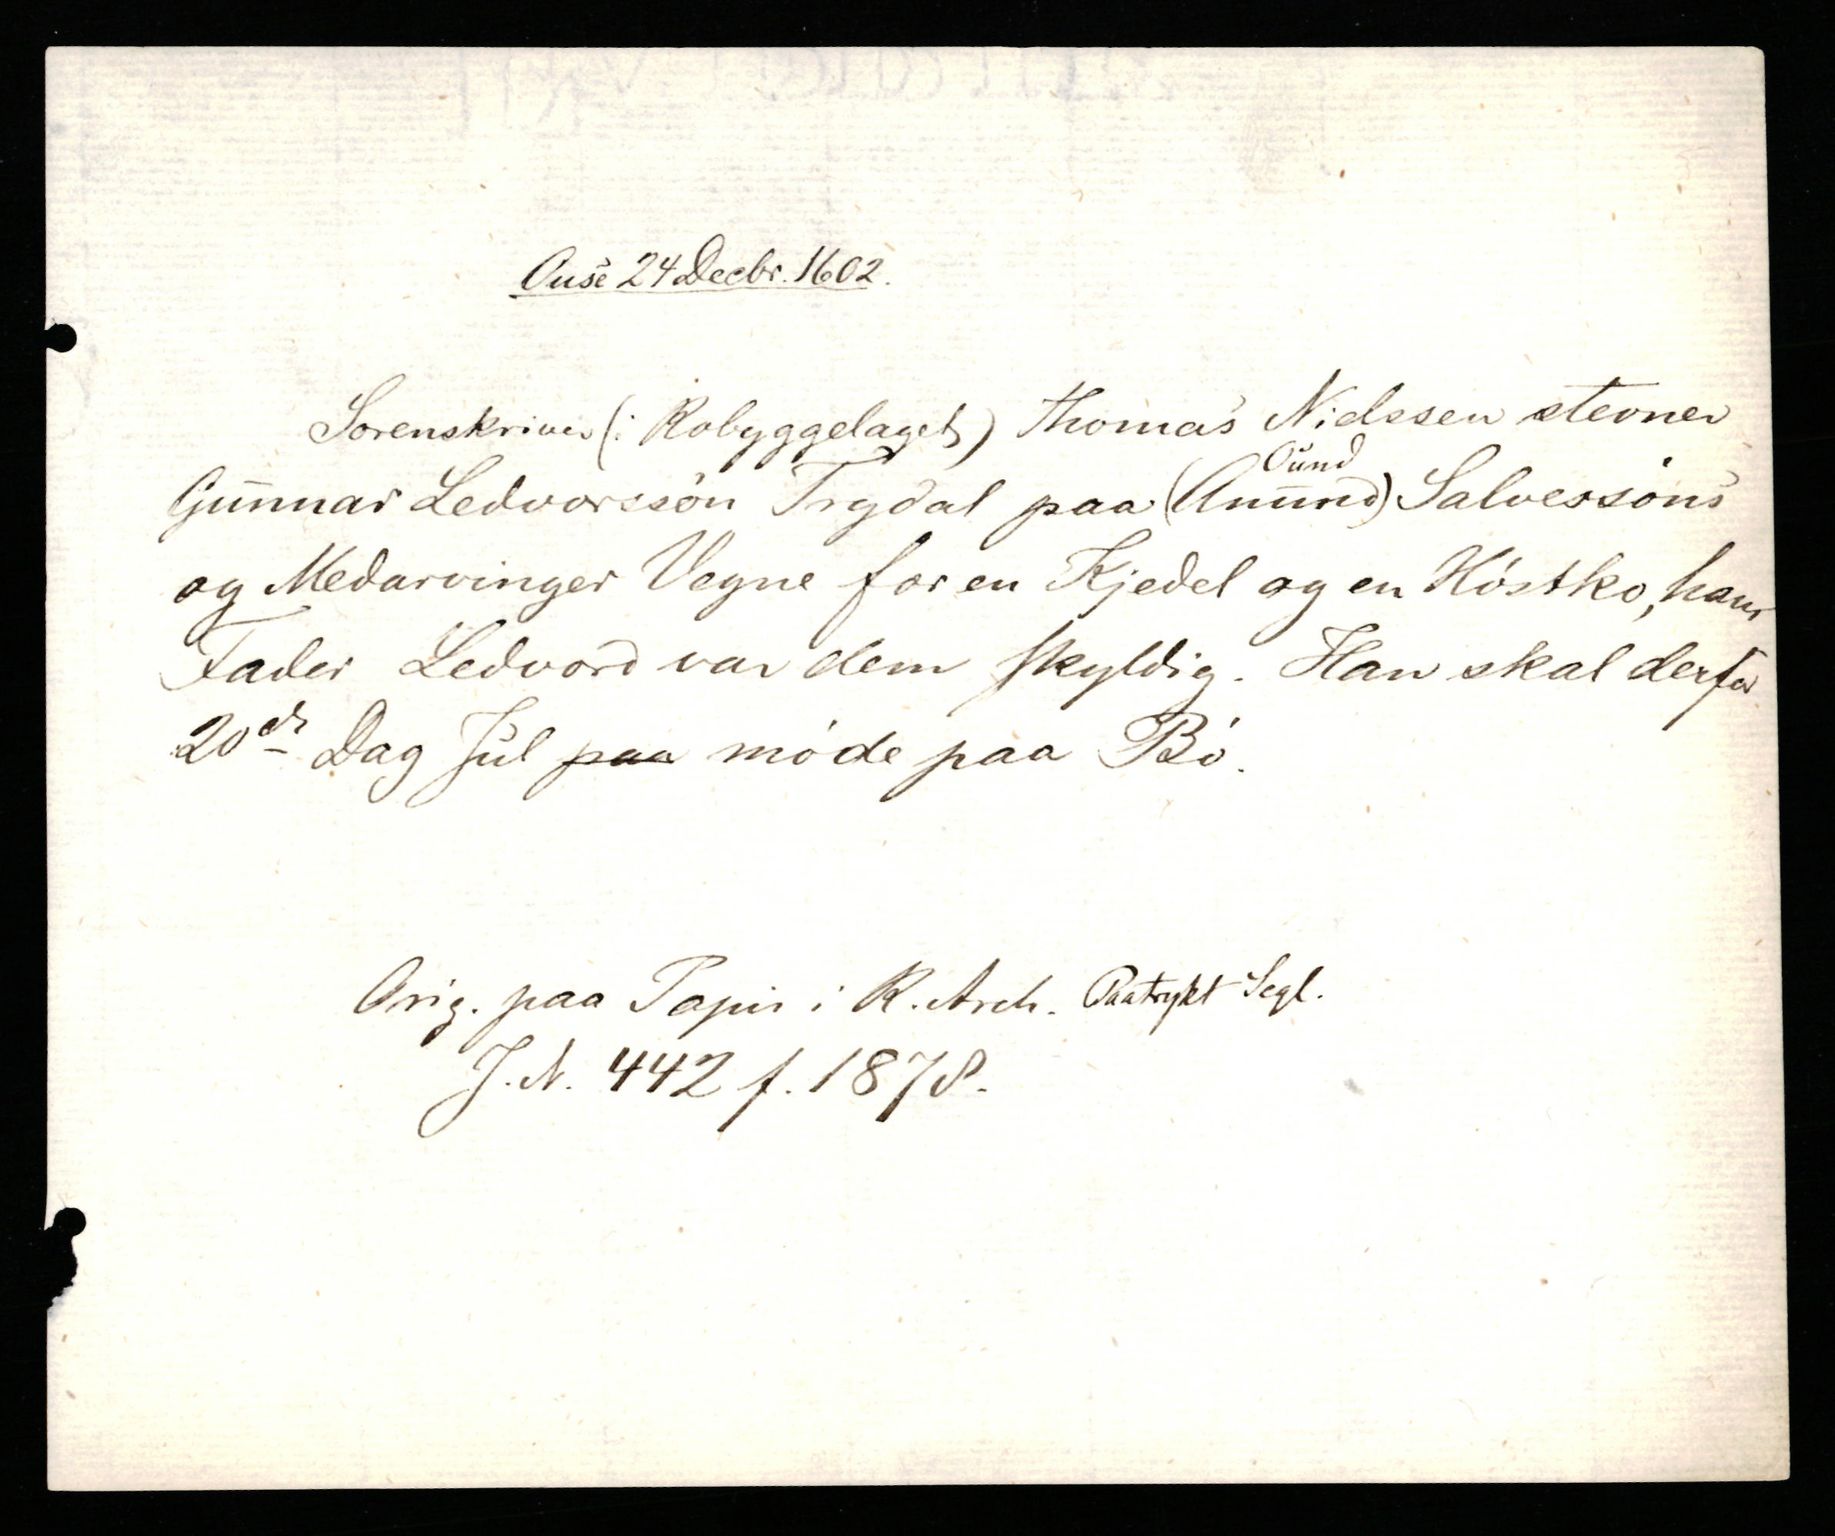 Ouse 24 Decbr. 1602.
Sorenskriver (i Robyggelaget) Thomas Nielssen stevner
Gunnar Ledvorssön Trydal paa (Amund) Ound Salvessöns
og Medarvinger Vegne for en Kjedel og en Höstko, hans
Fader Ledvord var dem skyldig. Han skal derfor
20de Dag Jul paa möde paa Bö.
Orig. paa Papir i R. Arch. Paatrykt Segl.
J. N. 442 f. 1878.